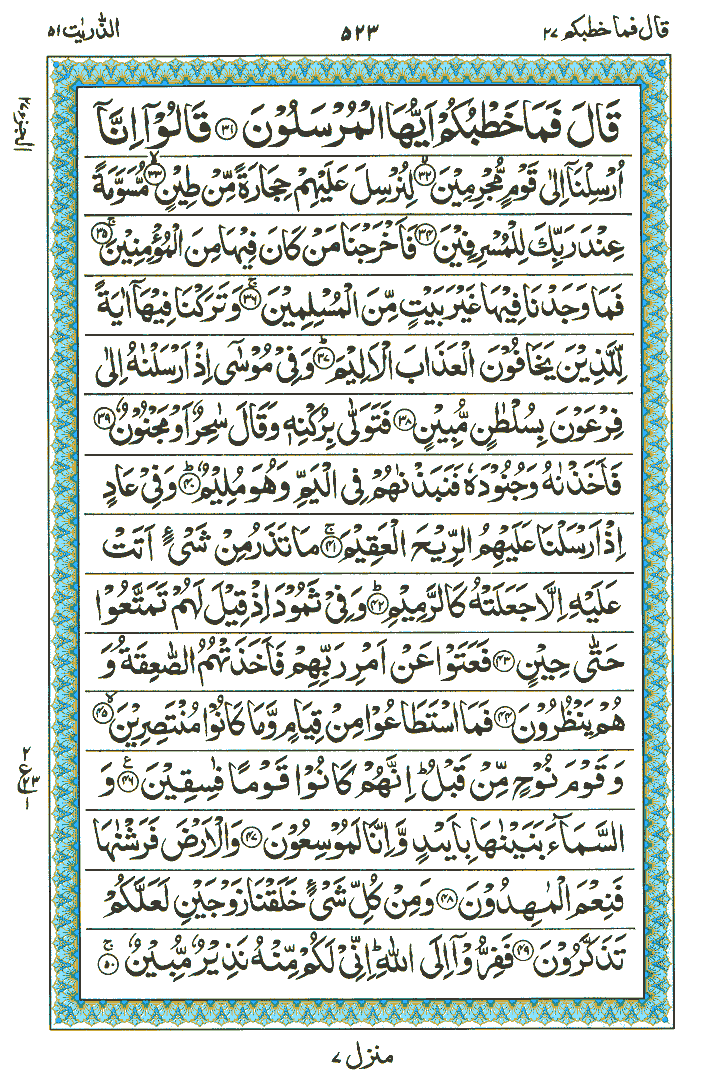 قال فما خطبكم ٢٧
٥٢٣
الذّٰريٰت ٥١
الجزء ٢٧
قَالَ فَمَا خَطْبُكُمْ اَيُّهَا الْمُرْسَلُوْنَ ﴿٣١﴾ قَالُوْۤا اِنَّاۤ
اُرْسِلْنَاۤ اِلٰى قَوْمٍ مُّجْرِمِيْنَ ﴿٣٢﴾ۙ لِنُرْسِلَ عَلَيْهِمْ حِجَارَةً مِّنْ طِيْنٍ ﴿٣٣﴾ۙ مُّسَوَّمَةً
عِنْدَ رَبِّكَ لِلْمُسْرِفِيْنَ ﴿٣٤﴾ فَاَخْرَجْنَا مَنْ كَانَ فِيْهَا مِنَ الْمُؤْمِنِيْنَ ﴿٣٥﴾ۚ
فَمَا وَجَدْنَا فِيْهَا غَيْرَ بَيْتٍ مِّنَ الْمُسْلِمِيْنَ ﴿٣٦﴾ۚ وَتَرَكْنَا فِيْهَاۤ اٰيَةً
لِّلَّذِيْنَ يَخَافُوْنَ الْعَذَابَ الْاَلِيْمَ ﴿٣٧﴾ؕ وَفِيْ مُوْسٰۤى اِذْ اَرْسَلْنٰهُ اِلٰى
فِرْعَوْنَ بِسُلْطٰنٍ مُّبِيْنٍ ﴿٣٨﴾ فَتَوَلّٰى بِرُكْنِهٖ وَقَالَ سٰحِرٌ اَوْ مَجْنُوْنٌ ﴿٣٩﴾
فَاَخَذْنٰهُ وَجُنُوْدَهٗ فَنَبَذْنٰهُمْ فِى الْيَمِّ وَهُوَ مُلِيْمٌ ﴿٤٠﴾ؕ وَفِيْ عَادٍ
اِذْ اَرْسَلْنَا عَلَيْهِمُ الرِّيْحَ الْعَقِيْمَ ﴿٤١﴾ۚ مَا تَذَرُ مِنْ شَيْءٍ اَتَتْ
عَلَيْهِ اِلَّا جَعَلَتْهُ كَالرَّمِيْمِ ﴿٤٢﴾ؕ وَفِيْ ثَمُوْدَ اِذْ قِيْلَ لَهُمْ تَمَتَّعُوْا
حَتّٰى حِيْنٍ ﴿٤٣﴾ فَعَتَوْا عَنْ اَمْرِ رَبِّهِمْ فَاَخَذَتْهُمُ الصّٰعِقَةُ وَ
هُمْ يَنْظُرُوْنَ ﴿٤٤﴾ فَمَا اسْتَطَاعُوْا مِنْ قِيَامٍ وَّمَا كَانُوْا مُنْتَصِرِيْنَ ﴿٤٥﴾ۙ
وَقَوْمَ نُوْحٍ مِّنْ قَبْلُ ؕ اِنَّهُمْ كَانُوْا قَوْمًا فٰسِقِيْنَ ﴿٤٦﴾ وَ
٢
ع
٢٣
١
السَّمَآءَ بَنَيْنٰهَا بِاَيْىدٍ وَّاِنَّا لَمُوْسِعُوْنَ ﴿٤٧﴾ وَالْاَرْضَ فَرَشْنٰهَا
فَنِعْمَ الْمٰهِدُوْنَ ﴿٤٨﴾ وَمِنْ كُلِّ شَيْءٍ خَلَقْنَا زَوْجَيْنِ لَعَلَّكُمْ
تَذَكَّرُوْنَ ﴿٤٩﴾ فَفِرُّوْۤا اِلَى اللّٰهِ ؕ اِنِّيْ لَكُمْ مِّنْهُ نَذِيْرٌ مُّبِيْنٌ ﴿٥٠﴾ۚ
منزل ٧